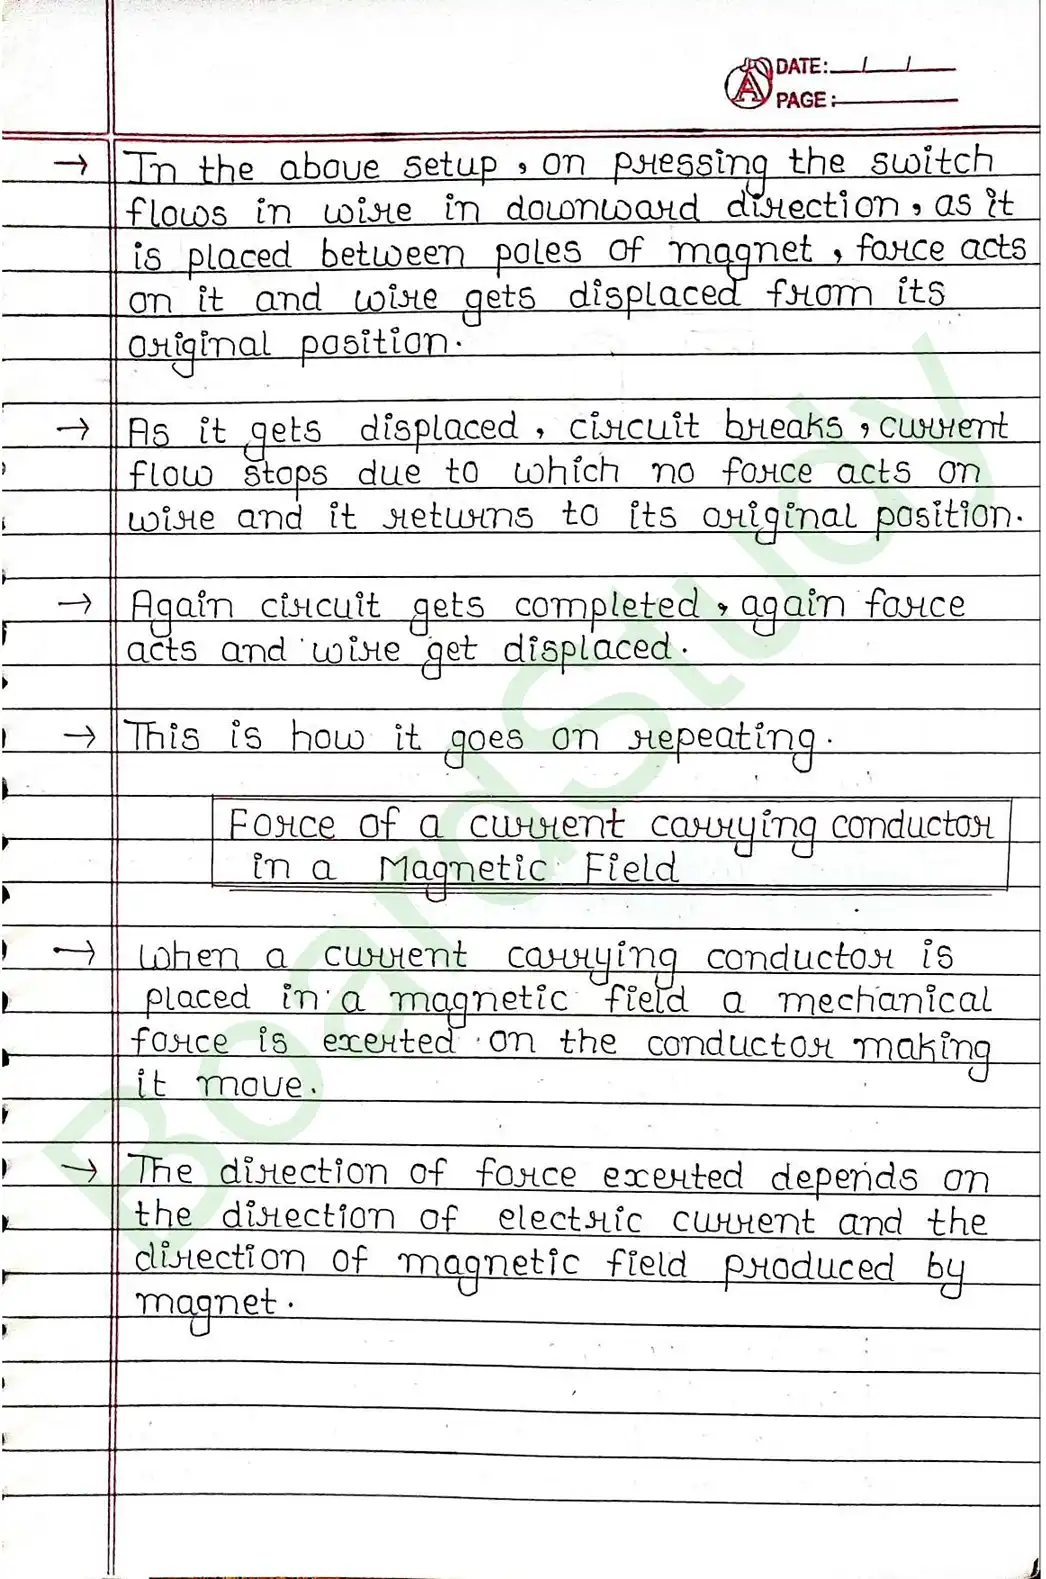 DATE: / /
PAGE:
→ In the above setup, on pressing the switch
flows in wire in downward direction, as it
is placed between poles of magnet, force acts
on it and wire gets displaced from its
original position.
→ As it gets displaced, circuit breaks, current
flow stops due to which no force acts on
wire and it returns to its original position.
→ Again circuit gets completed, again force
acts and wire get displaced.
→ This is how it goes on repeating.
Force of a current carrying conductor
in a Magnetic Field
→ When a current carrying conductor is
placed in a magnetic field a mechanical
force is exerted on the conductor making
it move.
→ The direction of force exerted depends on
the direction of electric current and the
direction of magnetic field produced by
magnet.
BoardStudy